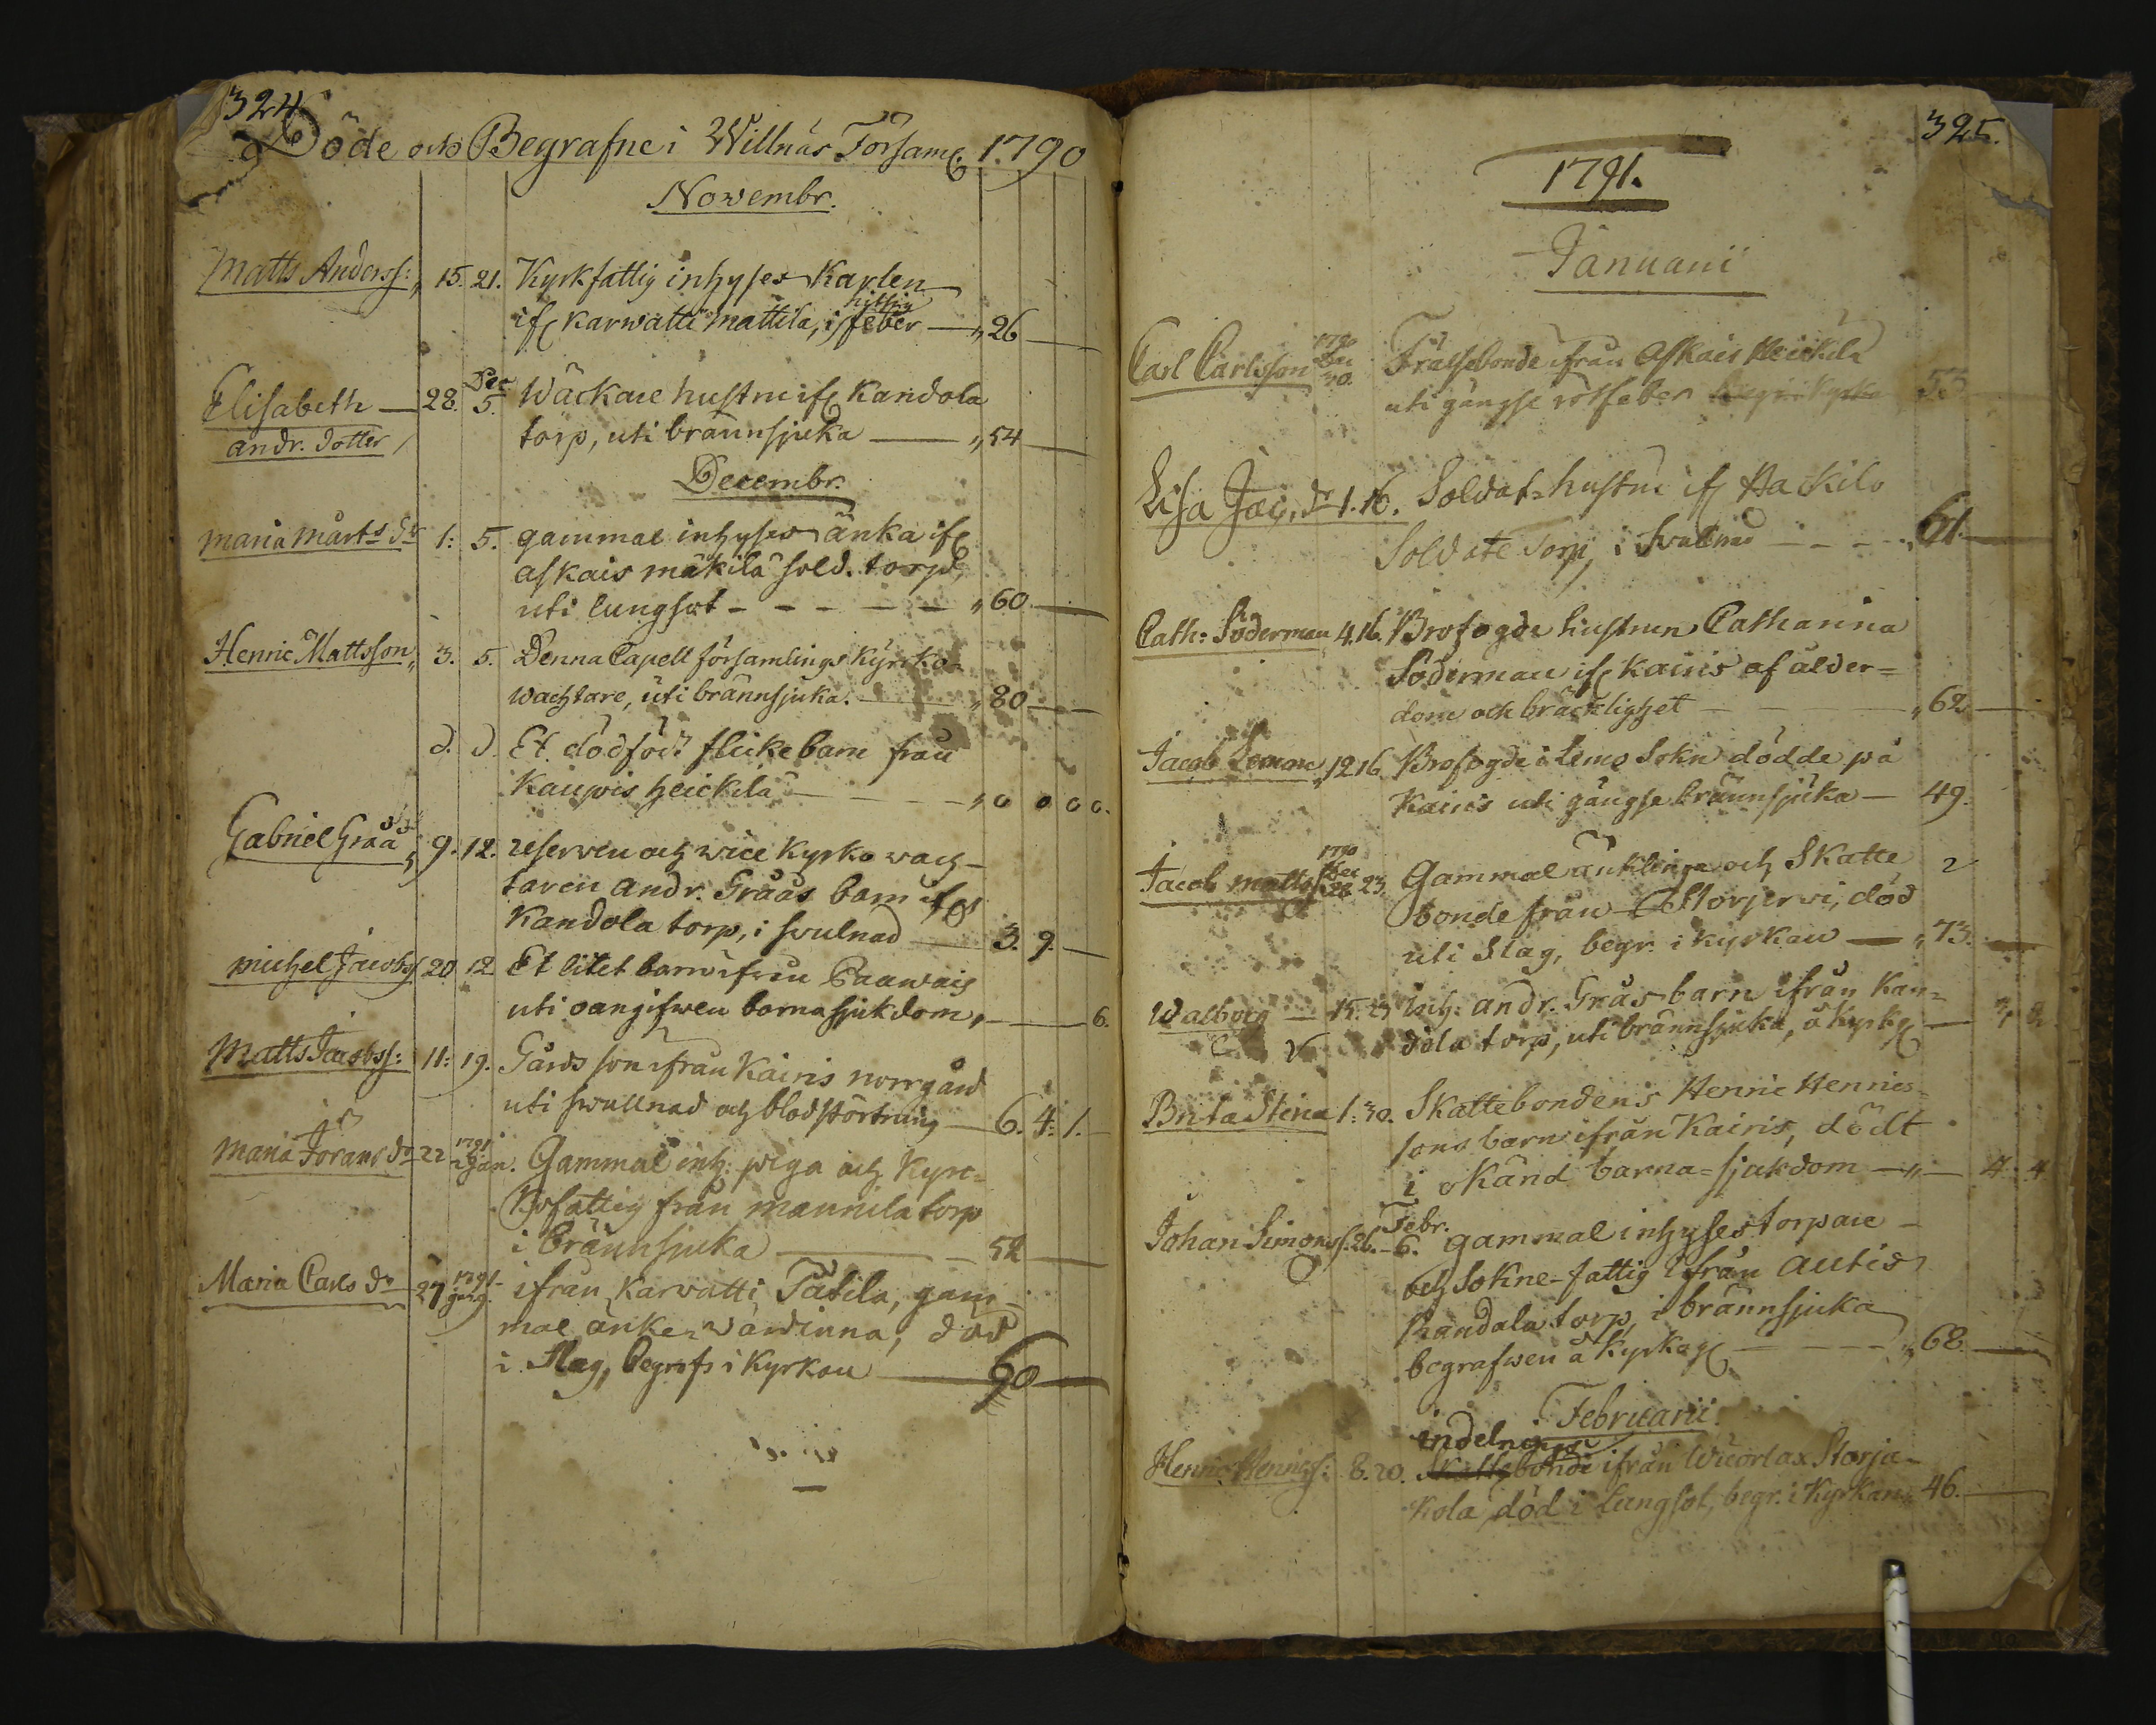 324
Döde och Begrafne i Willnäs Församl. 1790
Novembr.
Matts Anderss: 15. 21. Kyrkfattig inhyses Karlen
hittsig
ifr Karwatti Mattila, i feber — 26
Elisabeth — 28. Dec 5. Wäckare hustru ifr Kandola
andr. dotter torp, uti brännsjuka — 54
Decembr.
Maria Märts dr 1: 5. gammal inhyses änka ifr
askais mäkilä sold. torp,
uti lungsot - - - - - 60
Henric Mattsson 3. 5. Denna Capell församlings Kyrcko-
wachtare, uti brännsjuka. — 80
d. d. Et dödfödt flickebarn från
Kaurois heickilä — 0 0 0 0.
Gabriel Graå 9. 12. reserven och vice Kyrko wach-
taren andr. Graås barn ifr
Kandola torp, i swulnad — 3. 9.
Michel Jacobss 20. 12. Et litet barn ifrån
uti oangifwen barnasjukdom, — 6.
Matts Jacobss: 11: 19. Gårds son ifrån Kairis norrgård
uti swullnad och blodstörtning — 6. 4: 1.
Maria Jörans dr 22 1791 2 Jan. Gammal inh: piga och Kyrc-
kofattig från mannila torp
i brännsjuka — 52
Maria Carls dr 27 1791 Jan 9. ifrån Karvatti Tätilä, gam-
mal änke-wärdinna, död
i Slag, begrofs i Kyrkan — 60
325.
1791.
Januarii
Carl Carlsson 1790 Dec 30. Frälsebonde ifrån Askais Heickilä
uti gängse rötfeber begr i Kyrka 53
Lisa Jac. dr 1. 16. Soldats hustru ifr Hackilo
Soldate Torp, i Swulnad - - - 61.
Cath: Söderman 4. 16. Brofogde hustrun Catharina
Söderman ifr Kairis af ålder-
dom och bräcklighet — 62
Jacob Leman 12 16 Brofogde i Lemo Sokn dödde på
Kairis uti gängse brännsjuka — 49.
Jacob Matts 1790 Dec 28 23. Gammal änkling och Skatte 2
bonde från Storjerwi, död
uti Slag, begr. i Kyrkan — 73.
Walborg — 15. 23 Inh: andr. Gräs barn ifrån Kan-
dola torp, uti brännsjuka, å Kyrkg —
Brita Stina 1: 30. Skattebondens Henric Henrics-
sons barn ifrån Kairis, dödt
i okänd barna-sjukdom — 4. 4
Johan Simonss. 26. Febr. 6. gammal inhyses torpare
och Sokne-fattig ifrån Autis
Randala torp, i brännsjuka
begrafwen å Kyrkog — 68.
Februarii
indelnings
Henric Henricss: 8. 20. Skattebonde ifrån Wuorlax Storja-
kola, död i Lungsot, begr. i Kyrkan 46.